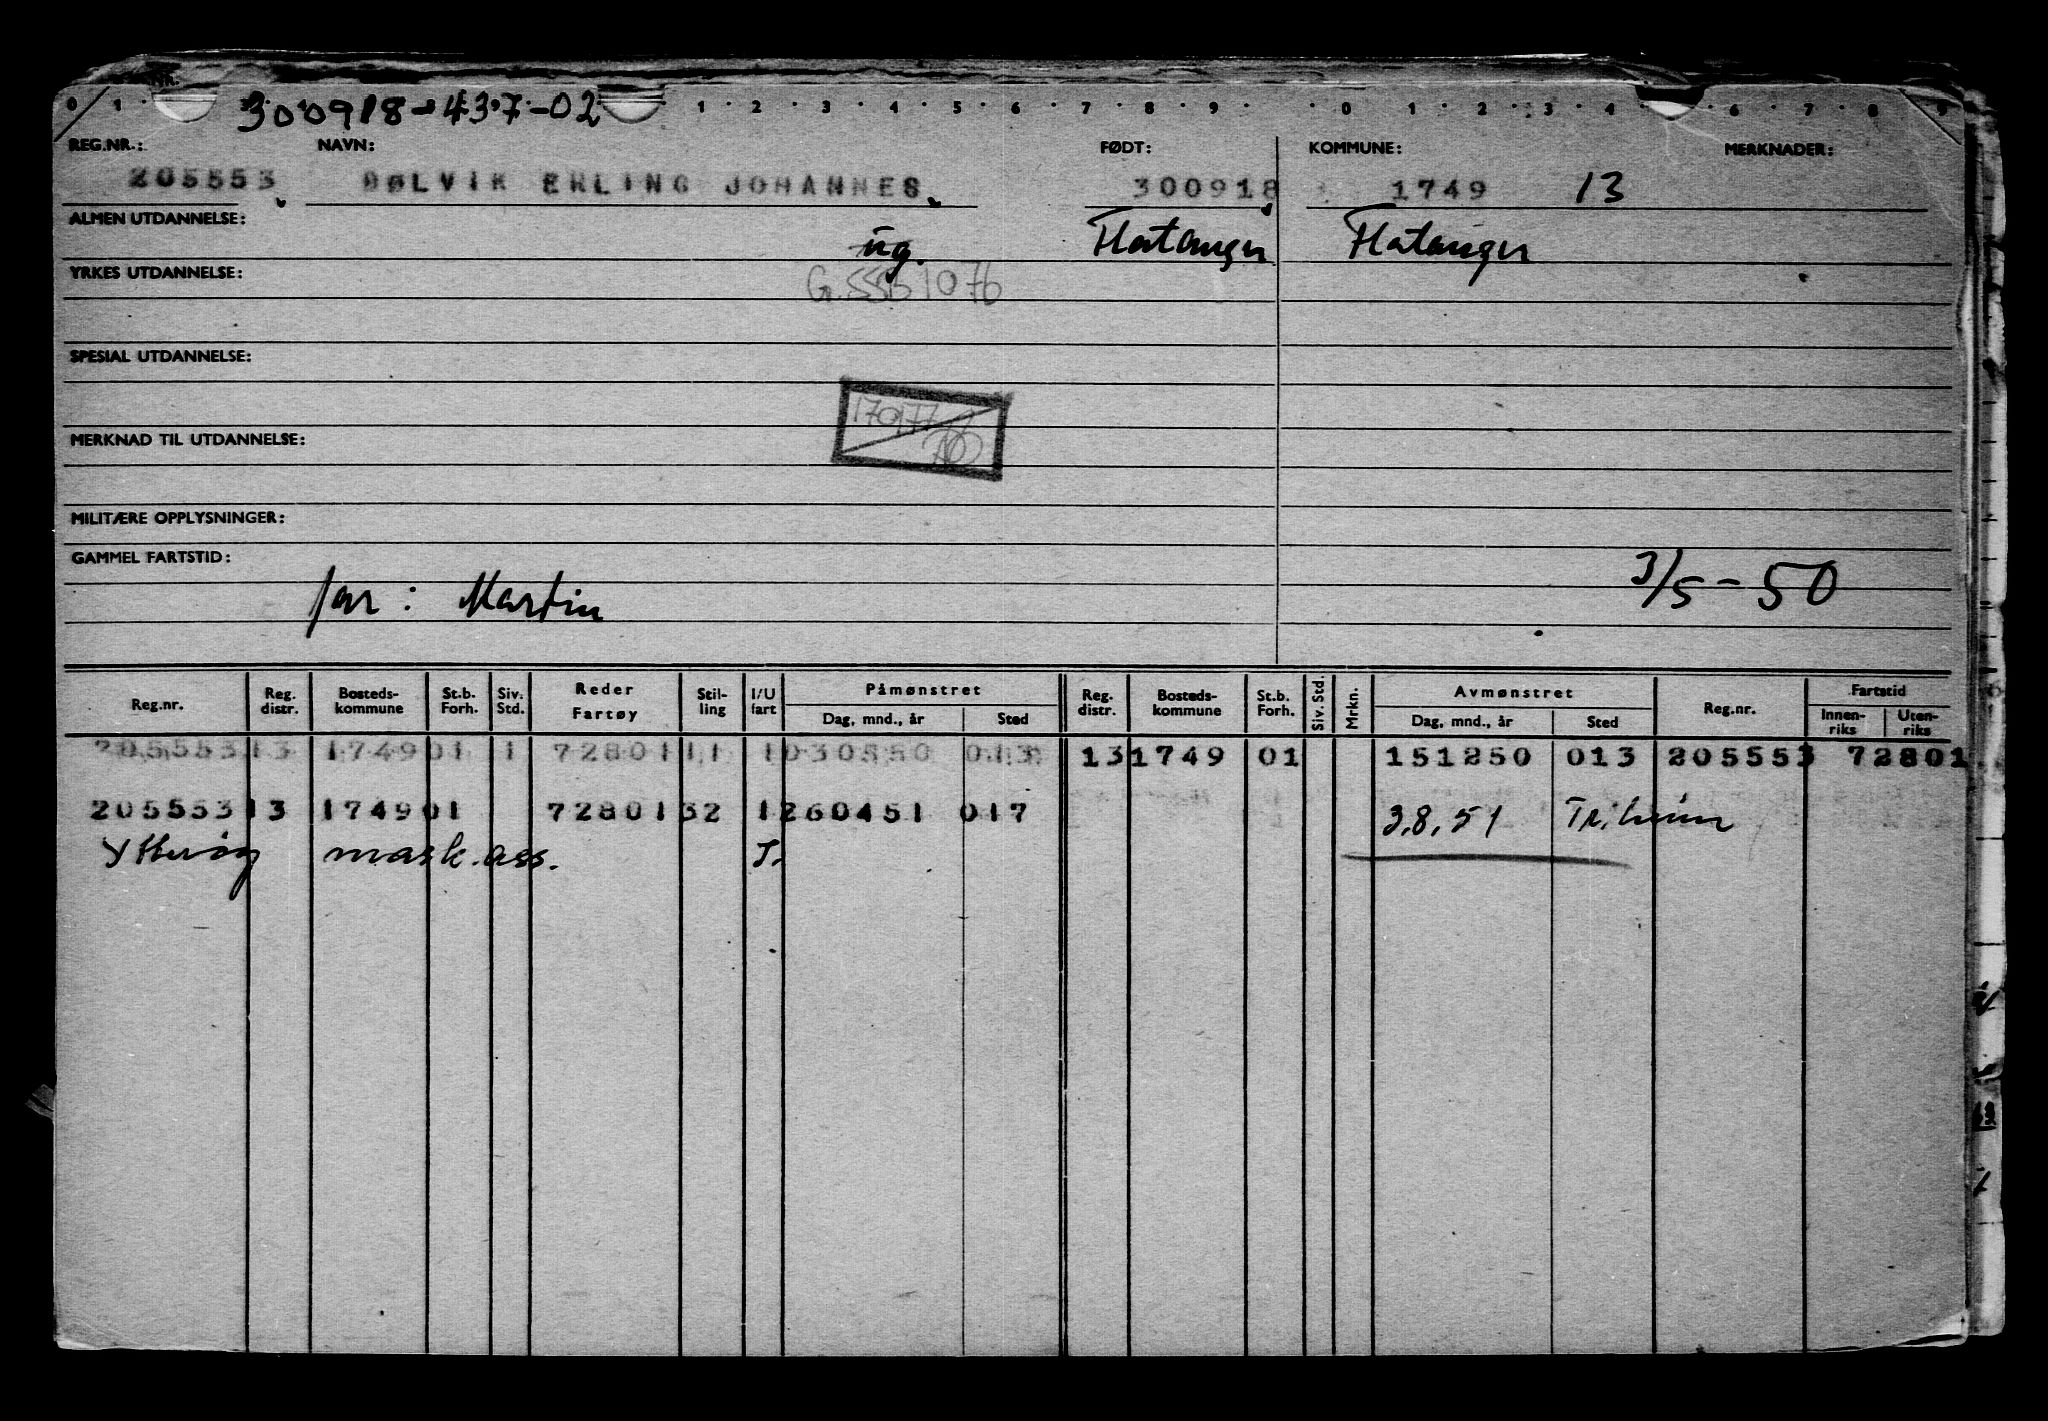 300918-437-02
REG.NR.: NAVN: FØDT: KOMMUNE: MERKNADER:
205553 DØLVIK ERLING JOHANNES 300918 1749 13
ALMEN UTDANNELSE: ug. Flatanger Flatanger
YRKES UTDANNELSE: G.SSB 1076
SPESIAL UTDANNELSE:
170177
MERKNAD TIL UTDANNELSE:
MILITÆRE OPPLYSNINGER:
GAMMEL FARTSTID:
far: Martin 3/5-50
Reg.nr. Reg. distr. Bosteds-kommune St.b. Forh. Siv. Std. Reder Fartøy Stil-ling I/U fart Påmønstret Dag, mnd., år Sted Reg. distr. Bosteds-kommune St.b. Forh. Siv. Std. Mrkn. Avmønstret Dag, mnd., år Sted Reg.nr. Fartstid Innen-riks Uten-riks
205553 13 1749 01 1 72801 11 1 030550 013 13 1749 01 151250 013 205553 72801
205553 13 1749 01 72801 32 1 260451 017 3.8.51 Tr.heim
Ytterøy mask.ass. J.